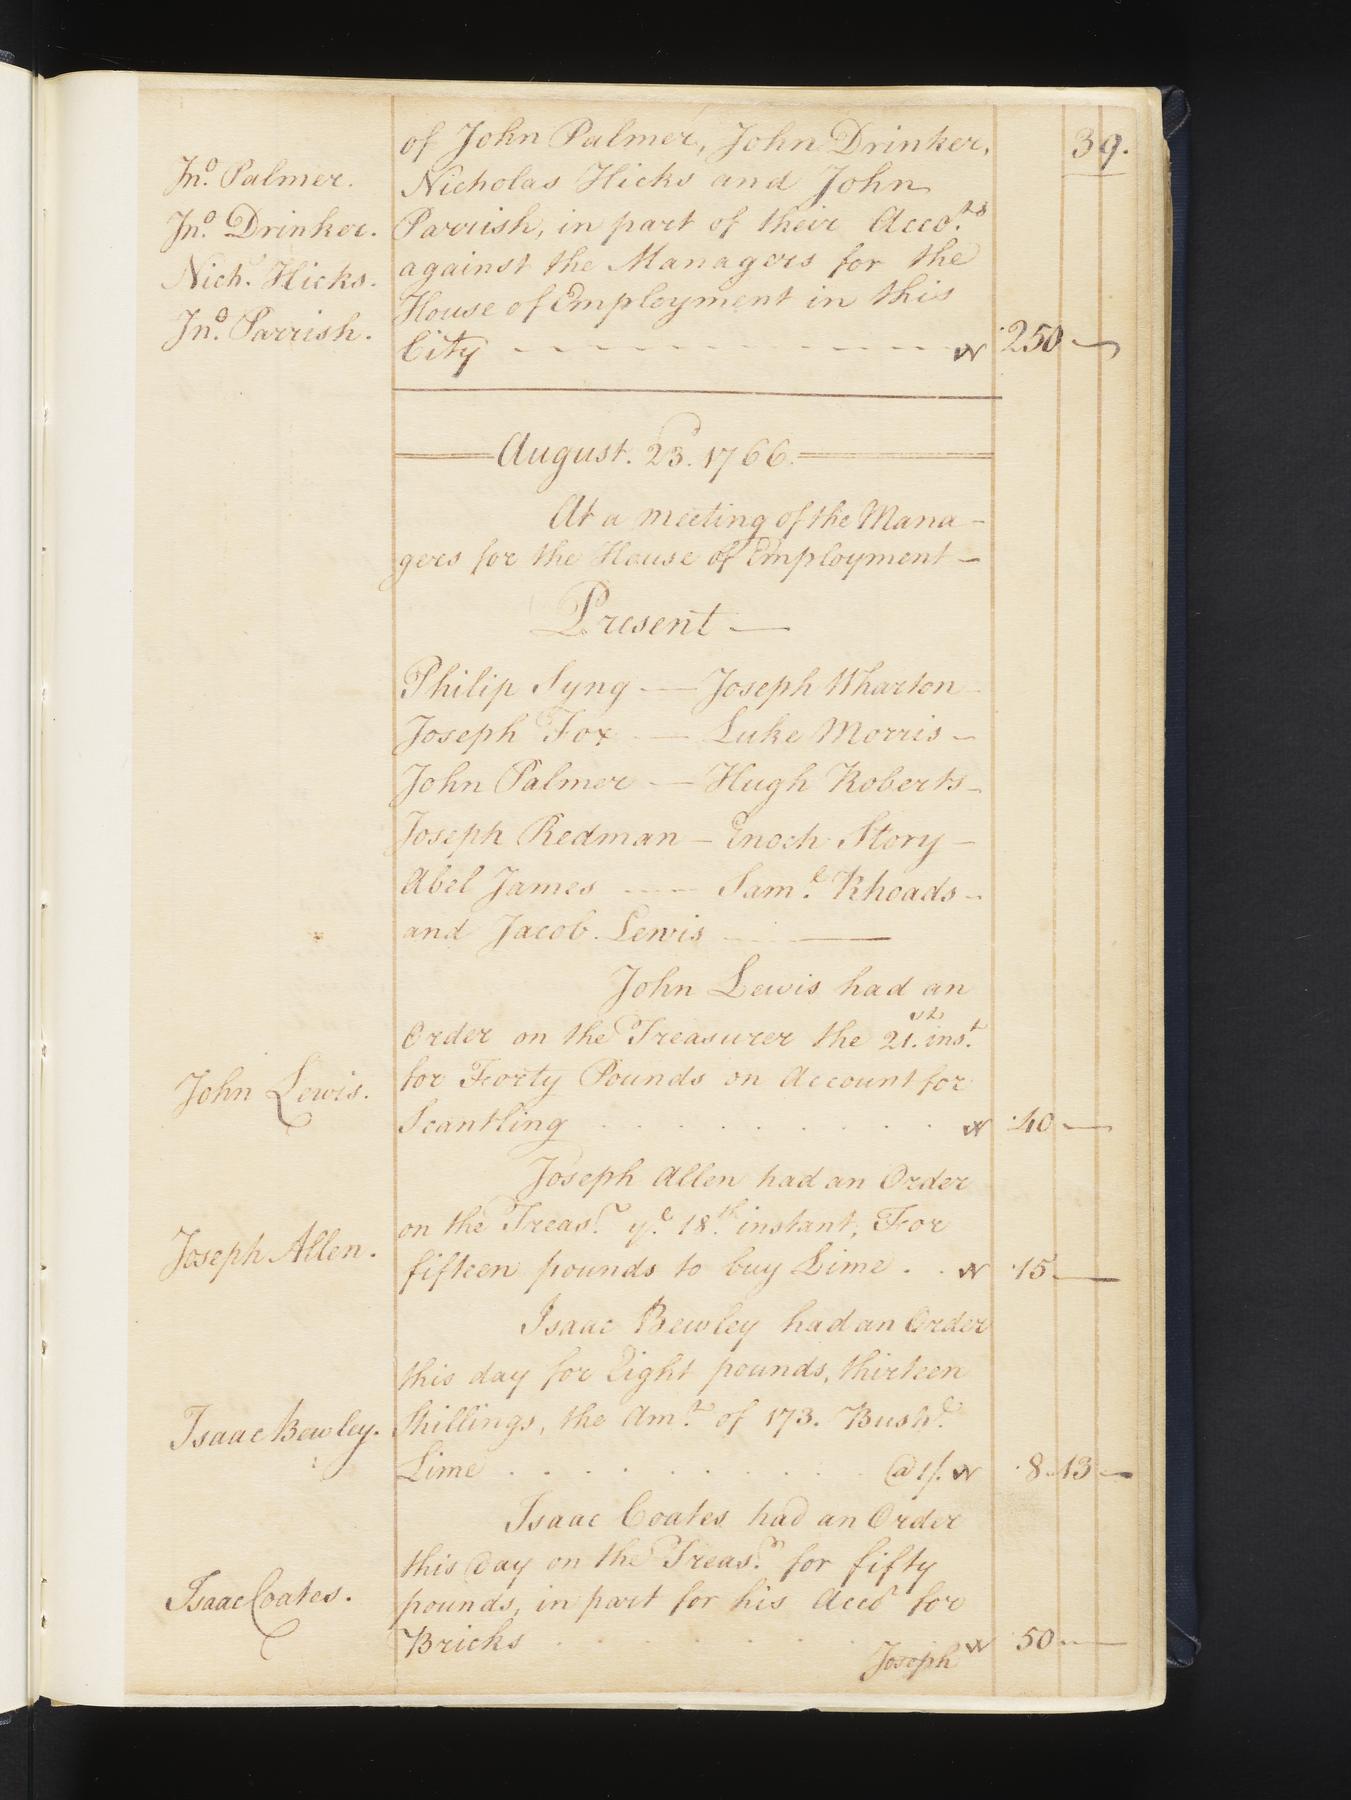 39.
of John Palmer, John Drinker,
Jnº. Palmer. Nicholas Hicks and John
Jnº. Drinker. Parrish, in part of their Acco.ts
Nich. Hicks. against the Managers for the
House of Employment in this
Jnº. Parrish. City 250
August. 23d. 1766.
At a meeting of the Mana-
gers for the House of Employment
Present
Philip Syng — Joseph Wharton
Joseph Fox — Luke Morris
John Palmer — Hugh Roberts
Joseph Redman — Enoch Story
Abel James — Sam.l Rhoads
and Jacob Lewis
John Lewis had an
Order on the Treasurer the 21.st ins.t
John Lewis. for Forty Pounds on Account for
Scantling 40
Joseph Allen had an Order
on the Treas.r y.e 18.th instant, For
Joseph Allen. fifteen pounds to buy Lime 15
Isaac Bewley had an Order
this day for Eight pounds, thirteen
Isaac Bewley. Shillings, the Am.t of 173. Bush.l
Lime @ 1/. 8 13
Isaac Coates had an Order
this Day on the Treas.r for fifty
Isaac Coates. pounds, in part for his Acco.t for
Bricks 50
Joseph